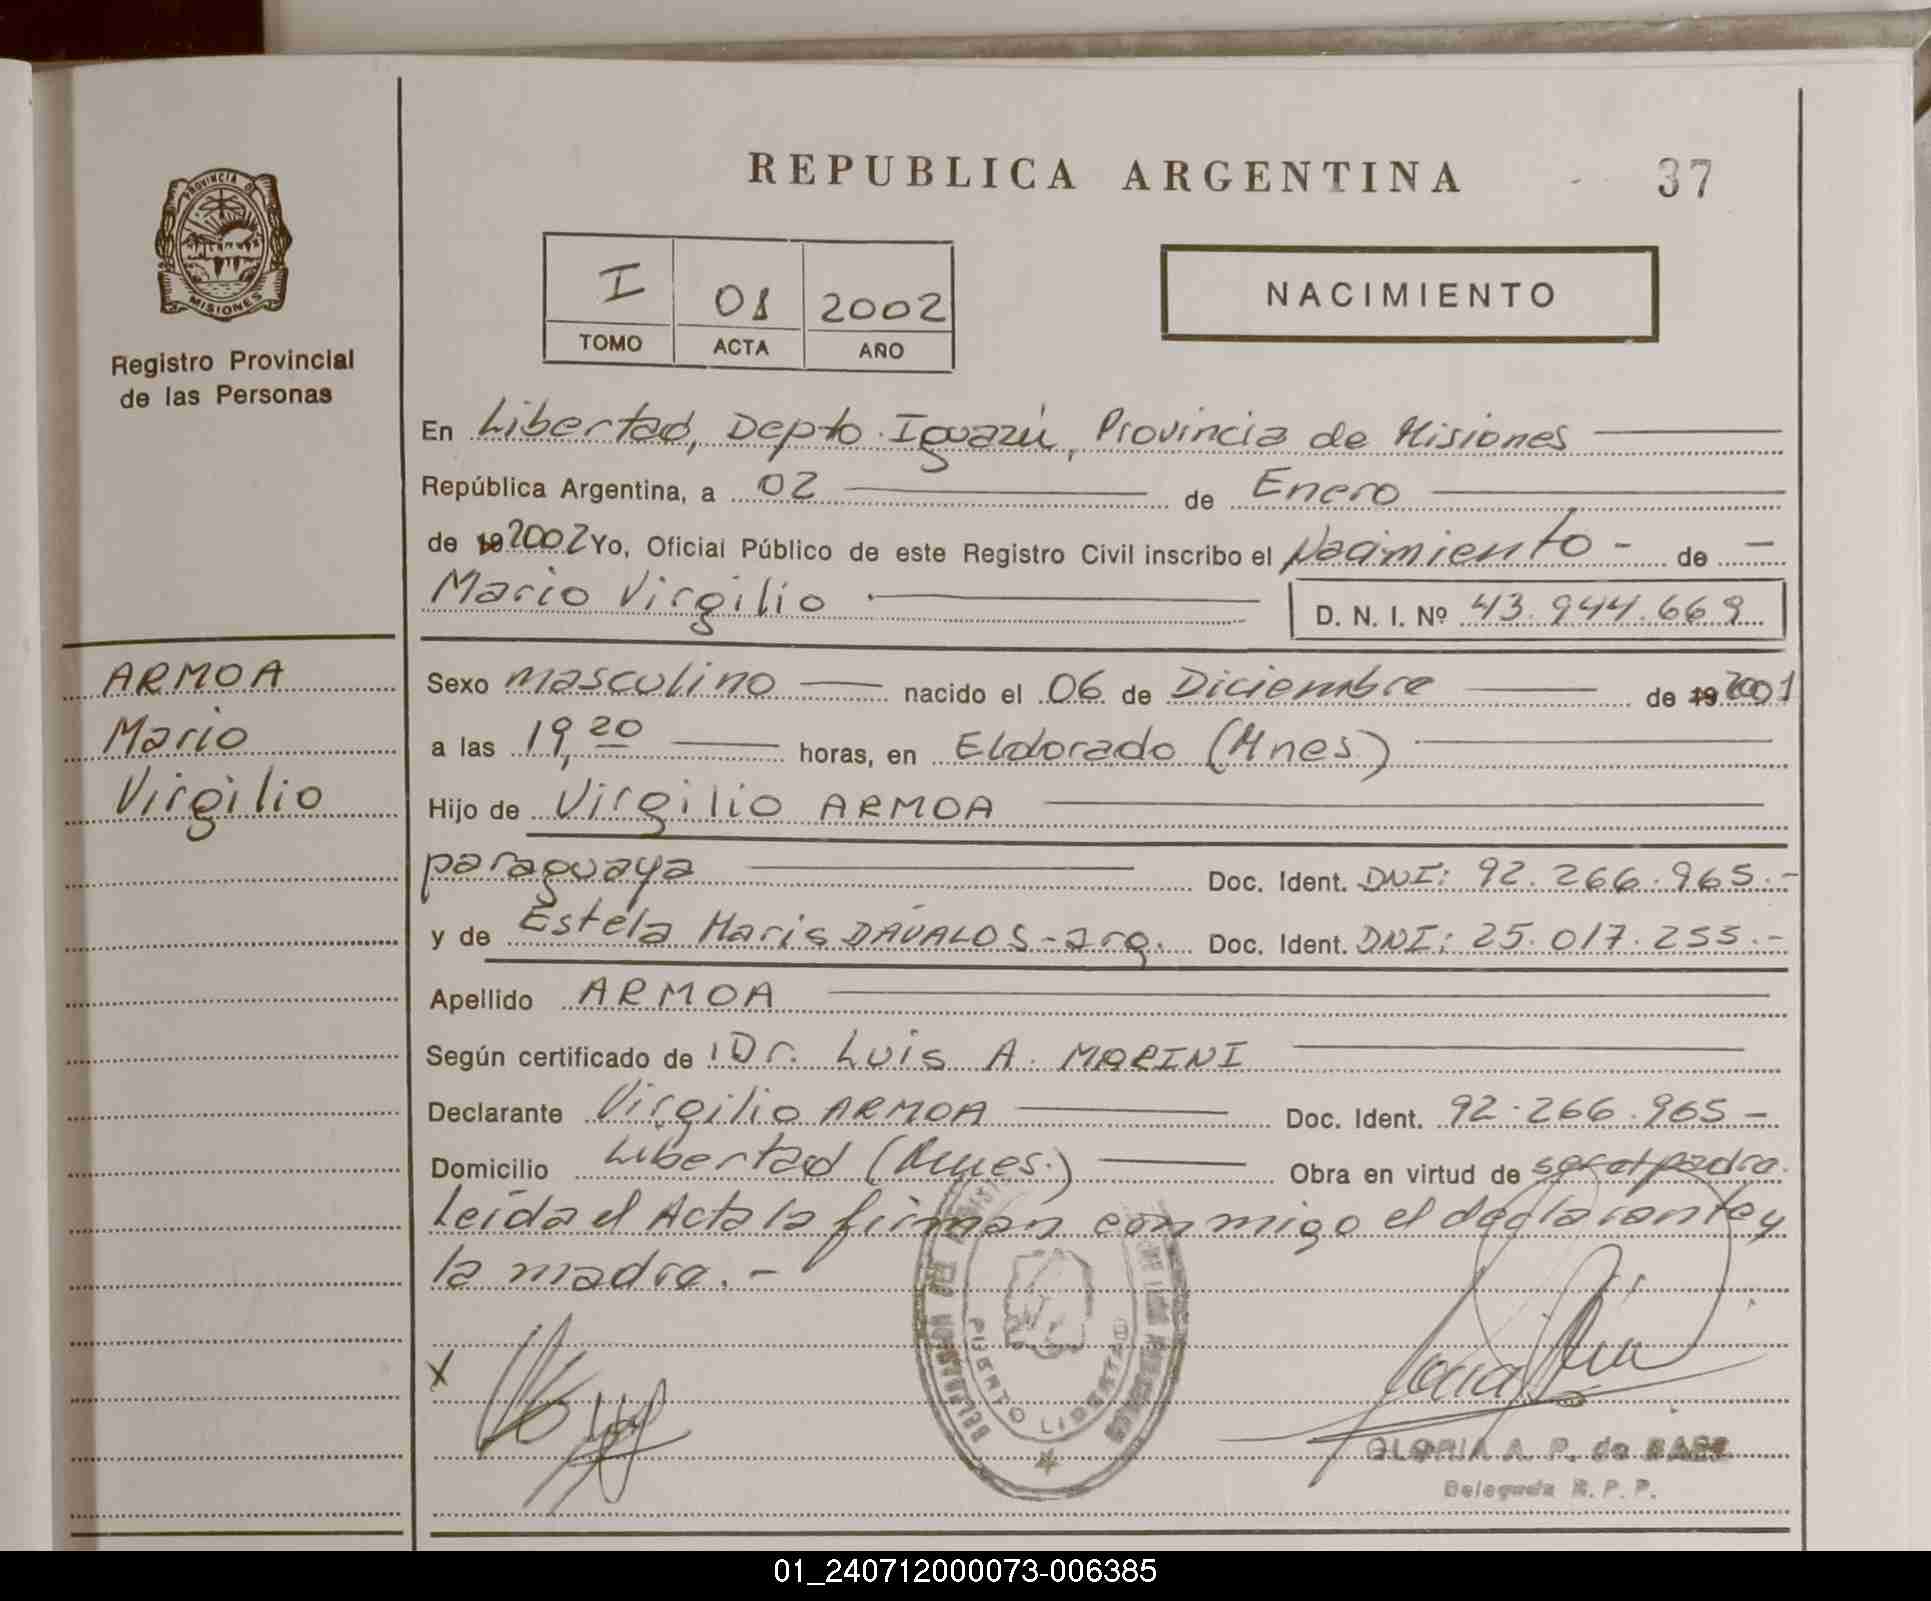 REPUBLICA ARGENTINA
37
PROVINCIA DE
MISIONES
Registro Provincial
de las Personas
I 01 2002
TOMO ACTA AÑO
NACIMIENTO
En Libertad, Depto. Iguazú, Provincia de Misiones
República Argentina, a 02 de Enero
de 19 2002 Yo, Oficial Público de este Registro Civil inscribo el Nacimiento - de -
Mario Virgilio D. N. I. Nº 43.944.669
ARMOA
Mario
Virgilio
Sexo masculino nacido el 06 de Diciembre de 19 2001
a las 19,20 horas, en Eldorado (Mnes.)
Hijo de Virgilio ARMOA
paraguaya Doc. Ident. DNI: 92.266.965.-
y de Estela Maris DAVALOS - arg. Doc. Ident. DNI: 25.017.255.-
Apellido ARMOA
Según certificado de Dr. Luis A. MARINI
Declarante Virgilio ARMOA Doc. Ident. 92.266.965 -
Domicilio Libertad (Mnes.) Obra en virtud de ser el padre.
Leída el Acta la firman conmigo el declarante y
la madre. -
X
PUERTO LIBERTAD
GLORIA A. P. de
Delegada R. P. P.
01_240712000073-006385